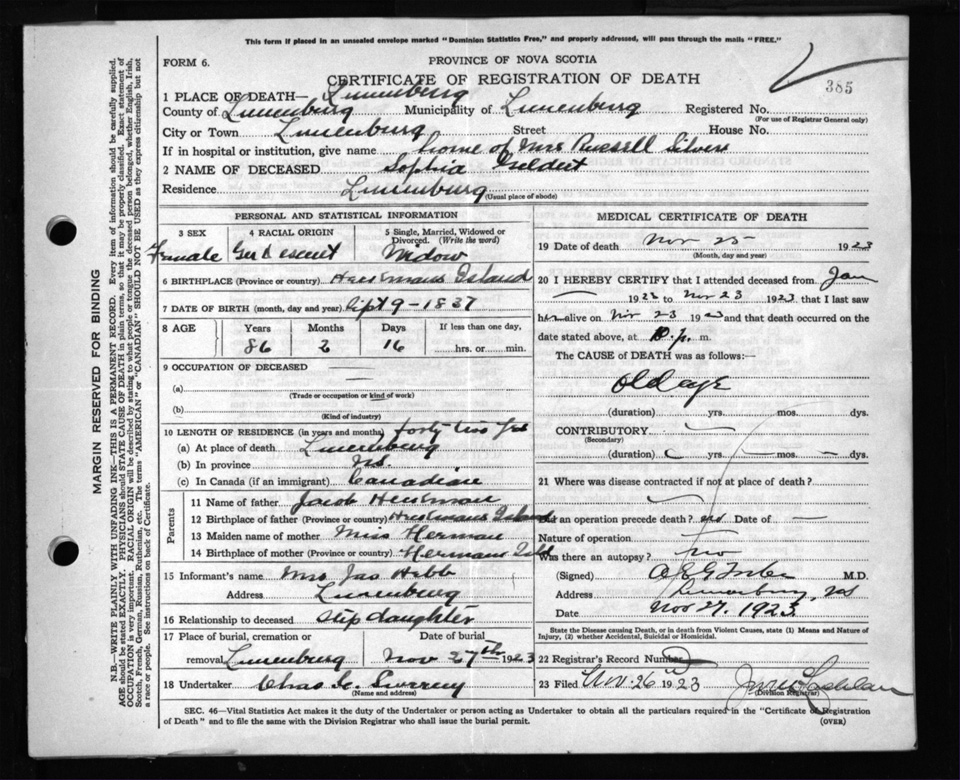 This form if placed in an unsealed envelope marked "Dominion Statistics Free," and properly addressed, will pass through the mails "FREE."
FORM 6.
PROVINCE OF NOVA SCOTIA
CERTIFICATE OF REGISTRATION OF DEATH
385
1 PLACE OF DEATH— Lunenburg
County of Lunenburg Municipality of Lunenburg Registered No.
(For use of Registrar General only)
City or Town Lunenburg Street House No.
If in hospital or institution, give name home of Mrs Russell Silver
2 NAME OF DECEASED Sophia Geldert
Residence Lunenburg
(Usual place of abode)
PERSONAL AND STATISTICAL INFORMATION
3 SEX 4 RACIAL ORIGIN 5 Single, Married, Widowed or Divorced. (Write the word)
Female Ger Descent Widow
6 BIRTHPLACE (Province or country) Island
7 DATE OF BIRTH (month, day and year) Sept 9 - 1837
8 AGE Years Months Days If less than one day,
86 2 16 hrs. or min.
9 OCCUPATION OF DECEASED —
(a) —
(Trade or occupation or kind of work)
(b)
(Kind of industry)
10 LENGTH OF RESIDENCE (in years and months) forty two yrs
(a) At place of death Lunenburg
(b) In province N.S.
(c) In Canada (if an immigrant) Canadian
Parents
11 Name of father Jacob
12 Birthplace of father (Province or country) Island
13 Maiden name of mother Miss Herman
14 Birthplace of mother (Province or country) Hermans Isld
15 Informant's name Mrs Jas Hebb
Address Lunenburg
16 Relationship to deceased step daughter
17 Place of burial, cremation or removal Lunenburg Date of burial Nov 27th 1923
18 Undertaker Chas
(Name and address)
MEDICAL CERTIFICATE OF DEATH
19 Date of death Nov 25 1923
(Month, day and year)
20 I HEREBY CERTIFY that I attended deceased from Jan
— 192 to Nov 23 1923 that I last saw
h alive on Nov 23 1923 and that death occurred on
date stated above, at 10. p. m.
The CAUSE of DEATH was as follows:—
Old age
(duration) yrs. mos. dys.
CONTRIBUTORY —
(Secondary)
(duration) yrs. — mos. — dys.
21 Where was disease contracted if not at place of death?
—
Did an operation precede death? no Date of —
Nature of operation —
Was there an autopsy? no
(Signed) M.D.
Address Lunenburg, NS
Date Nov 27. 1923
State the Disease causing Death, or in death from Violent Causes, state (1) Means and Nature of Injury, (2) whether Accidental, Suicidal or Homicidal.
22 Registrar's Record Number
23 Filed Nov. 26 1923
(Division Registrar)
SEC. 46—Vital Statistics Act makes it the duty of the Undertaker or person acting as Undertaker to obtain all the particulars required in the "Certificate of Registration
of Death" and to file the same with the Division Registrar who shall issue the burial permit.
(OVER)
MARGIN RESERVED FOR BINDING
N.B.—WRITE PLAINLY WITH UNFADING INK—THIS IS A PERMANENT RECORD. Every item of information should be carefully supplied.
AGE should be stated EXACTLY. PHYSICIANS should STATE CAUSE OF DEATH in plain terms, so that it may be properly classified. Exact statement of
OCCUPATION is very important. RACIAL ORIGIN will be described by stating to what people or tongue the deceased person belonged, whether English, Irish,
Scotch, French, German, Russian, Ruthenian, etc. The terms "AMERICAN" or "CANADIAN" SHOULD NOT BE USED as they express citizenship but not
a race or people. See instructions on back of Certificate.